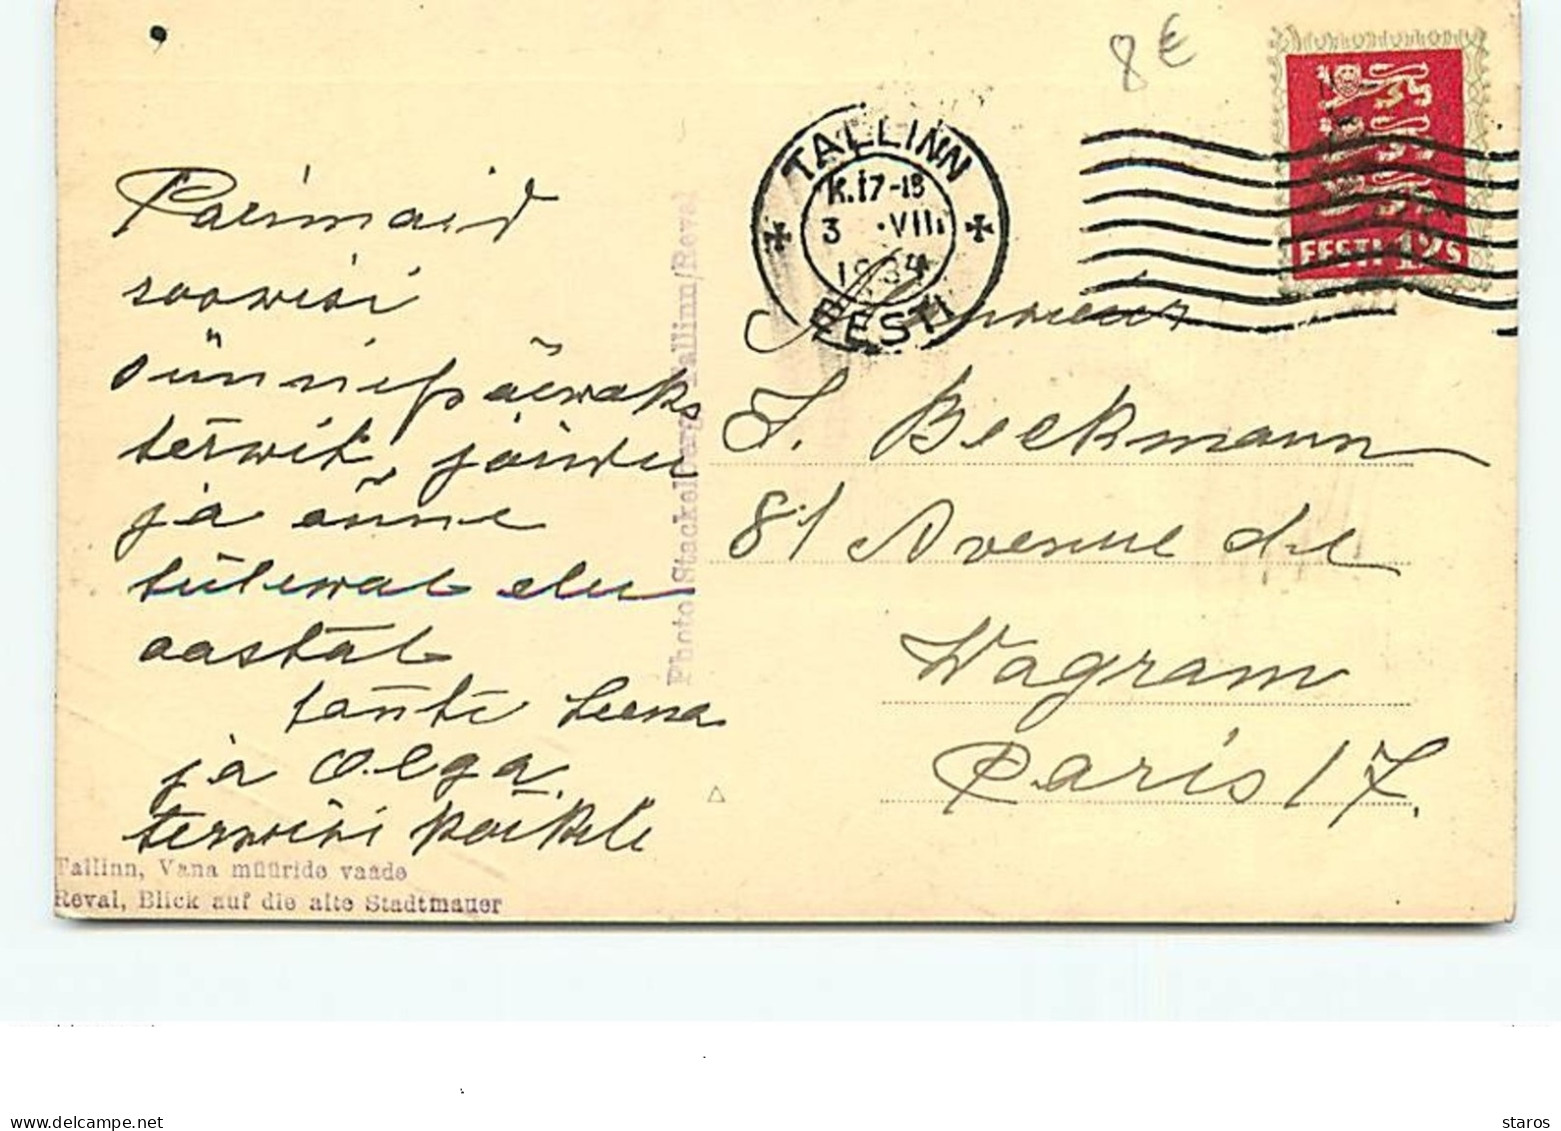 8€
TALLINN
K.17-18
3 .VII.
1934
EESTI
EESTI 12 S
Parimaid
soowisi
sünnipäewaks
terwit, jõudu
ja õnne
tulewal elu
aastal
tanti Leena
ja Olga.
terwisi kõikele
Photo Stackelberg Tallinn/Reval
Monsieur
J. Beckmann
81 Avenue de
Wagram
Paris 17.
Tallinn, Vana müüride vaade
Reval, Blick auf die alte Stadtmauer
www.delcampe.net
staros